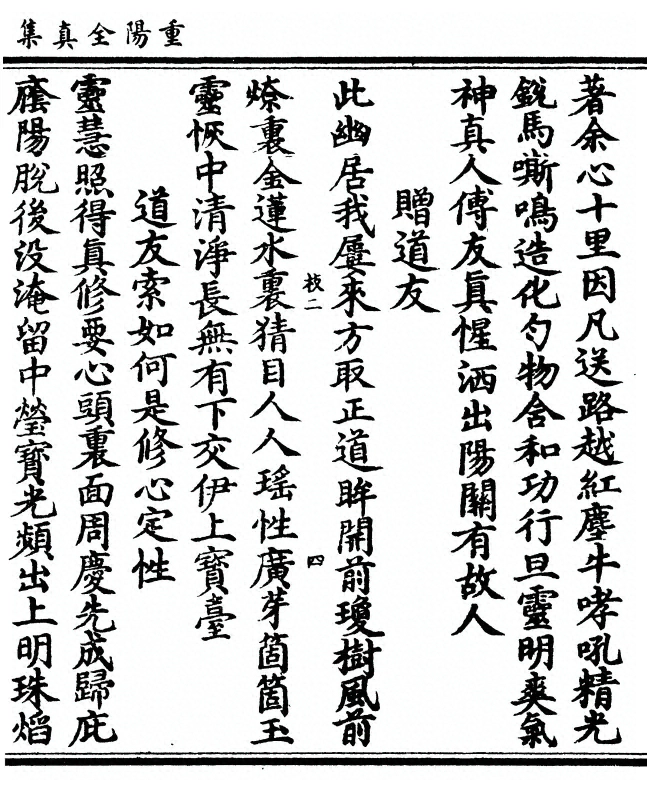 重陽全真集
著余心十里因凡送路越紅塵牛哮吼精光
銳馬嘶鳴造化勻物舍和功行旦靈明爽氣
神真人傳友真惺洒出陽關有故人
贈道友
此幽居我屢來方取正道眸開前瓊樹風前
燎裏金蓮水裏猜目人人瑤性廣芽箇箇玉
靈恢中清淨長無有下交伊上寶臺
道友索如何是修心定性
靈慧照得真修要心頭裏面周慶先成歸庇
廕陽脫後没淹留中瑩寶光頻出上明珠焰
枝二
四